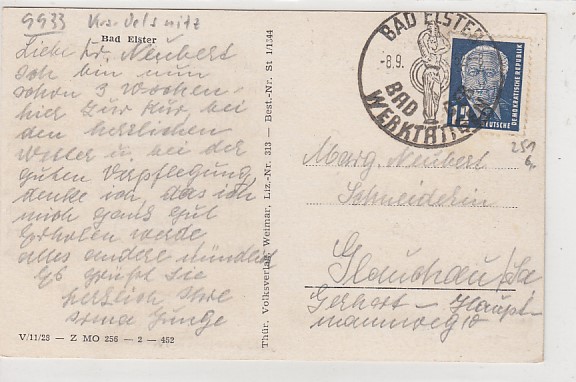 9933 Krs. Oelsnitz
Bad Elster
Liebe Fr. Neubert
Ich bin nun
schon 3 Wochen
hier zur Kur bei
den herrlichen
Wetter u. bei der
guten Verpflegung
denke ich, das ich
mich ganz gut
erholen werde
alles andere mündlich
Es grüßt sie
herzlich Ihre
Irma Junge
V/11/28 — Z MO 256 — 2 — 452
Thür. Volksverlag Weimar, Liz.-Nr. 313 — Best.-Nr. St 1/1544
BAD ELSTER
-8.9.
BAD
WERKTÄTIGEN
DEUTSCHE
DEMOKRATISCHE REPUBLIK
12
251
6,-
Marg. Neubert
Schneiderin
Glauchau/Sa
Gerhart - Haupt-
mannweg 10